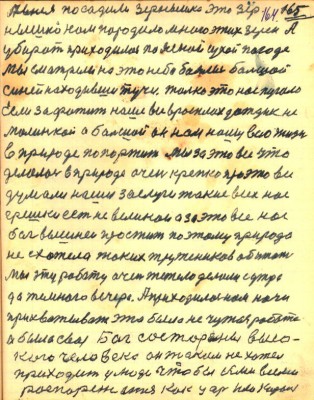 меня посадили зернышко это зер
164. 165
нышко нам породило много этих зерен А
убират приходилос по ясной сухой погоде
Мы сматрели на это небо были балшой
синей находивши тучи. толко это нас пугало
Если захватит наше вы врасплох дождик не
малинкой а балшой он нам нашу всю жизн
в природе попортит Мы за это все что
делолос в природе очен крепко про это все
думали наши заслуги такие всех нас
грешки ест не великои а за это все нас
Бог вышней простит поэтому природа
не схотела таких трутников обижат
Мы эту работу очен тежело делоли с утра
да темного вечера. А приходилос нам ночи
прихватыват это была не чужая работа
а была своя Бог состороны высо-
кого человека он таким не хотел
приходит к люде что бы семи всеми
распорежатися как удар